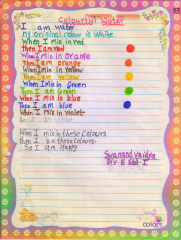 Colourful Water
I am water
my original colour is white.
When I mix in red
Then I am red
When I mix in Orange
Then I am orange
When I mix in Yellow
Then I am yellow
When I mix in Green
Then I am Green
When I mix in blue
Then I am blue
When I mix in Violet
When I mix in these colours
Then I be these colours
So I am Happy
Swanand Vaidya
Div-E Std-I
colors